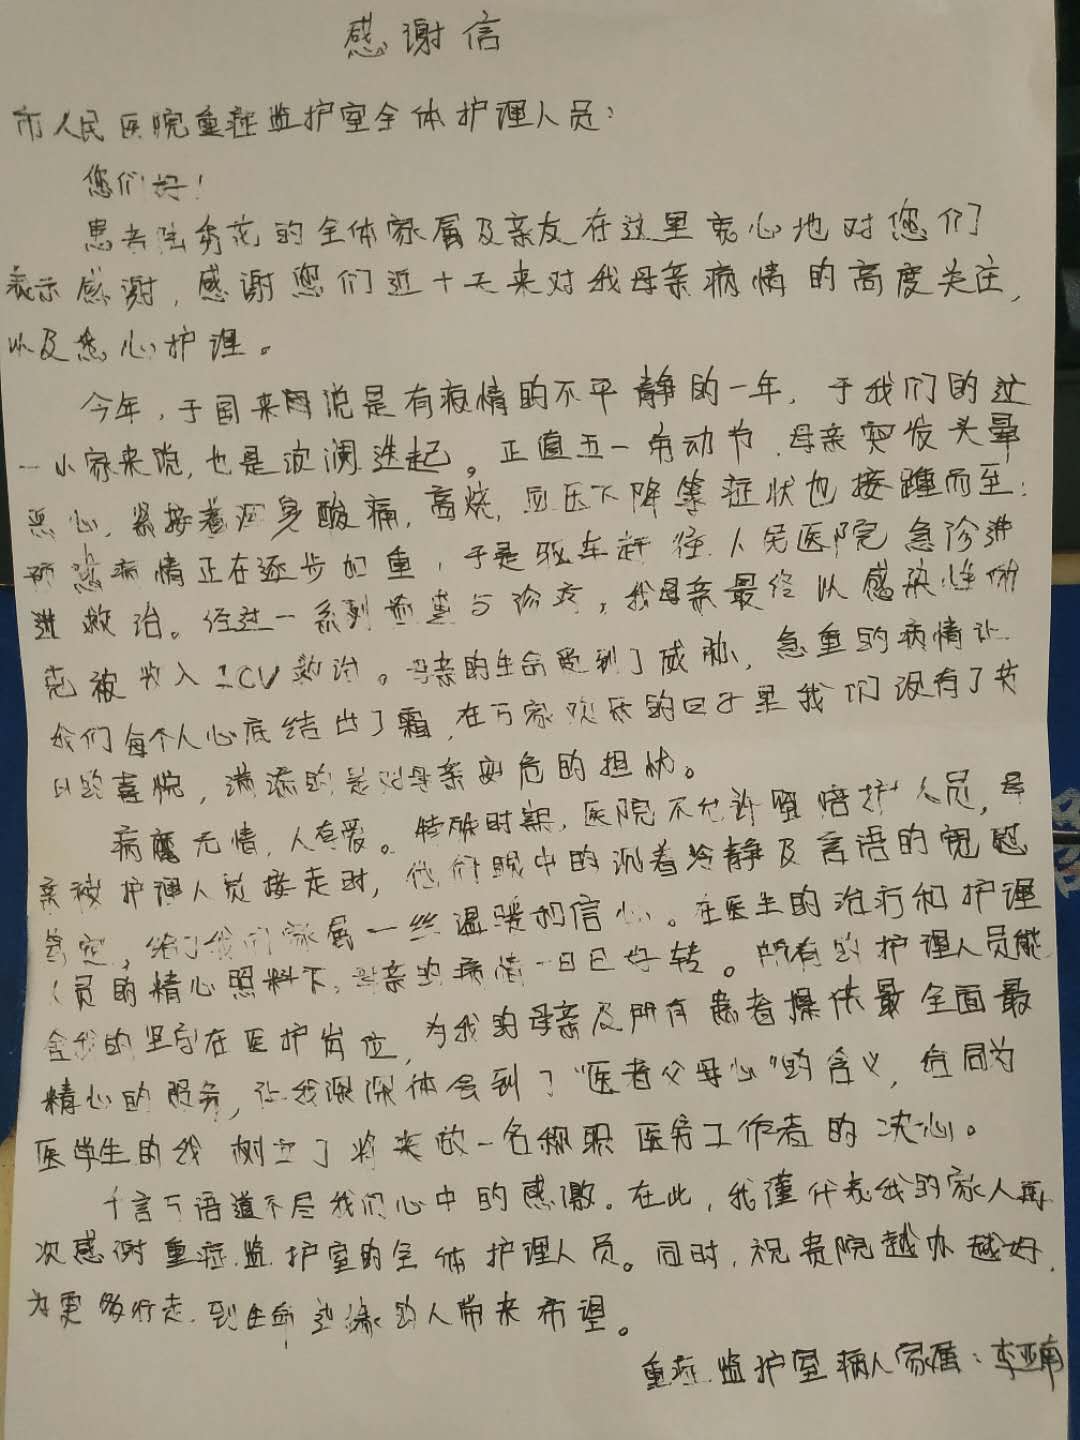 感谢信
市人民医院重症监护室全体护理人员：
您们好！
患者陆秀花的全体家属及亲友在这里衷心地对您们
表示感谢，感谢您们近十天来对我母亲病情的高度关注，
以及悉心护理。
今年，于国来说是有疫情的不平静的一年，于我们的这
一小家来说，也是波澜迭起。正值五一劳动节，母亲突发头晕
恶心，紧接着浑身酸痛，高烧，血压下降等症状也接踵而至；
病情正在逐步加重，于是驱车赶往人民医院急诊进
救治。经过一系列检查与诊疗，我母亲最终以感染性休
克被收入ICU救治。母亲的生命受到了威胁，急重的病情让
我们每个人心底结出了霜，在万家欢乐的日子里我们没有了节
日的喜悦，满添的是对母亲安危的担忧。
病魔无情，人有爱。特殊时期，医院不允许留陪护人员，母
亲被护理人员接走时，他们眼中的沉着冷静及言语的宽慰
笃定，给了我们家属一丝温暖和信心。在医生的治疗和护理
人员的精心照料下，母亲的病情一日日好转。所有的护理人员能
舍我的坚守在医护岗位，为我的母亲及所有患者提供最全面最
精心的服务，让我深深体会到了“医者父母心”的含义，也同为
医学生的我树立了将来做一名称职医务工作者的决心。
千言万语道不尽我们心中的感激。在此，我谨代表我的家人再
次感谢重症监护室的全体护理人员。同时，祝贵院越办越好，
为更多行走到生命边缘的人带来希望。
重症监护室病人家属：李亚南